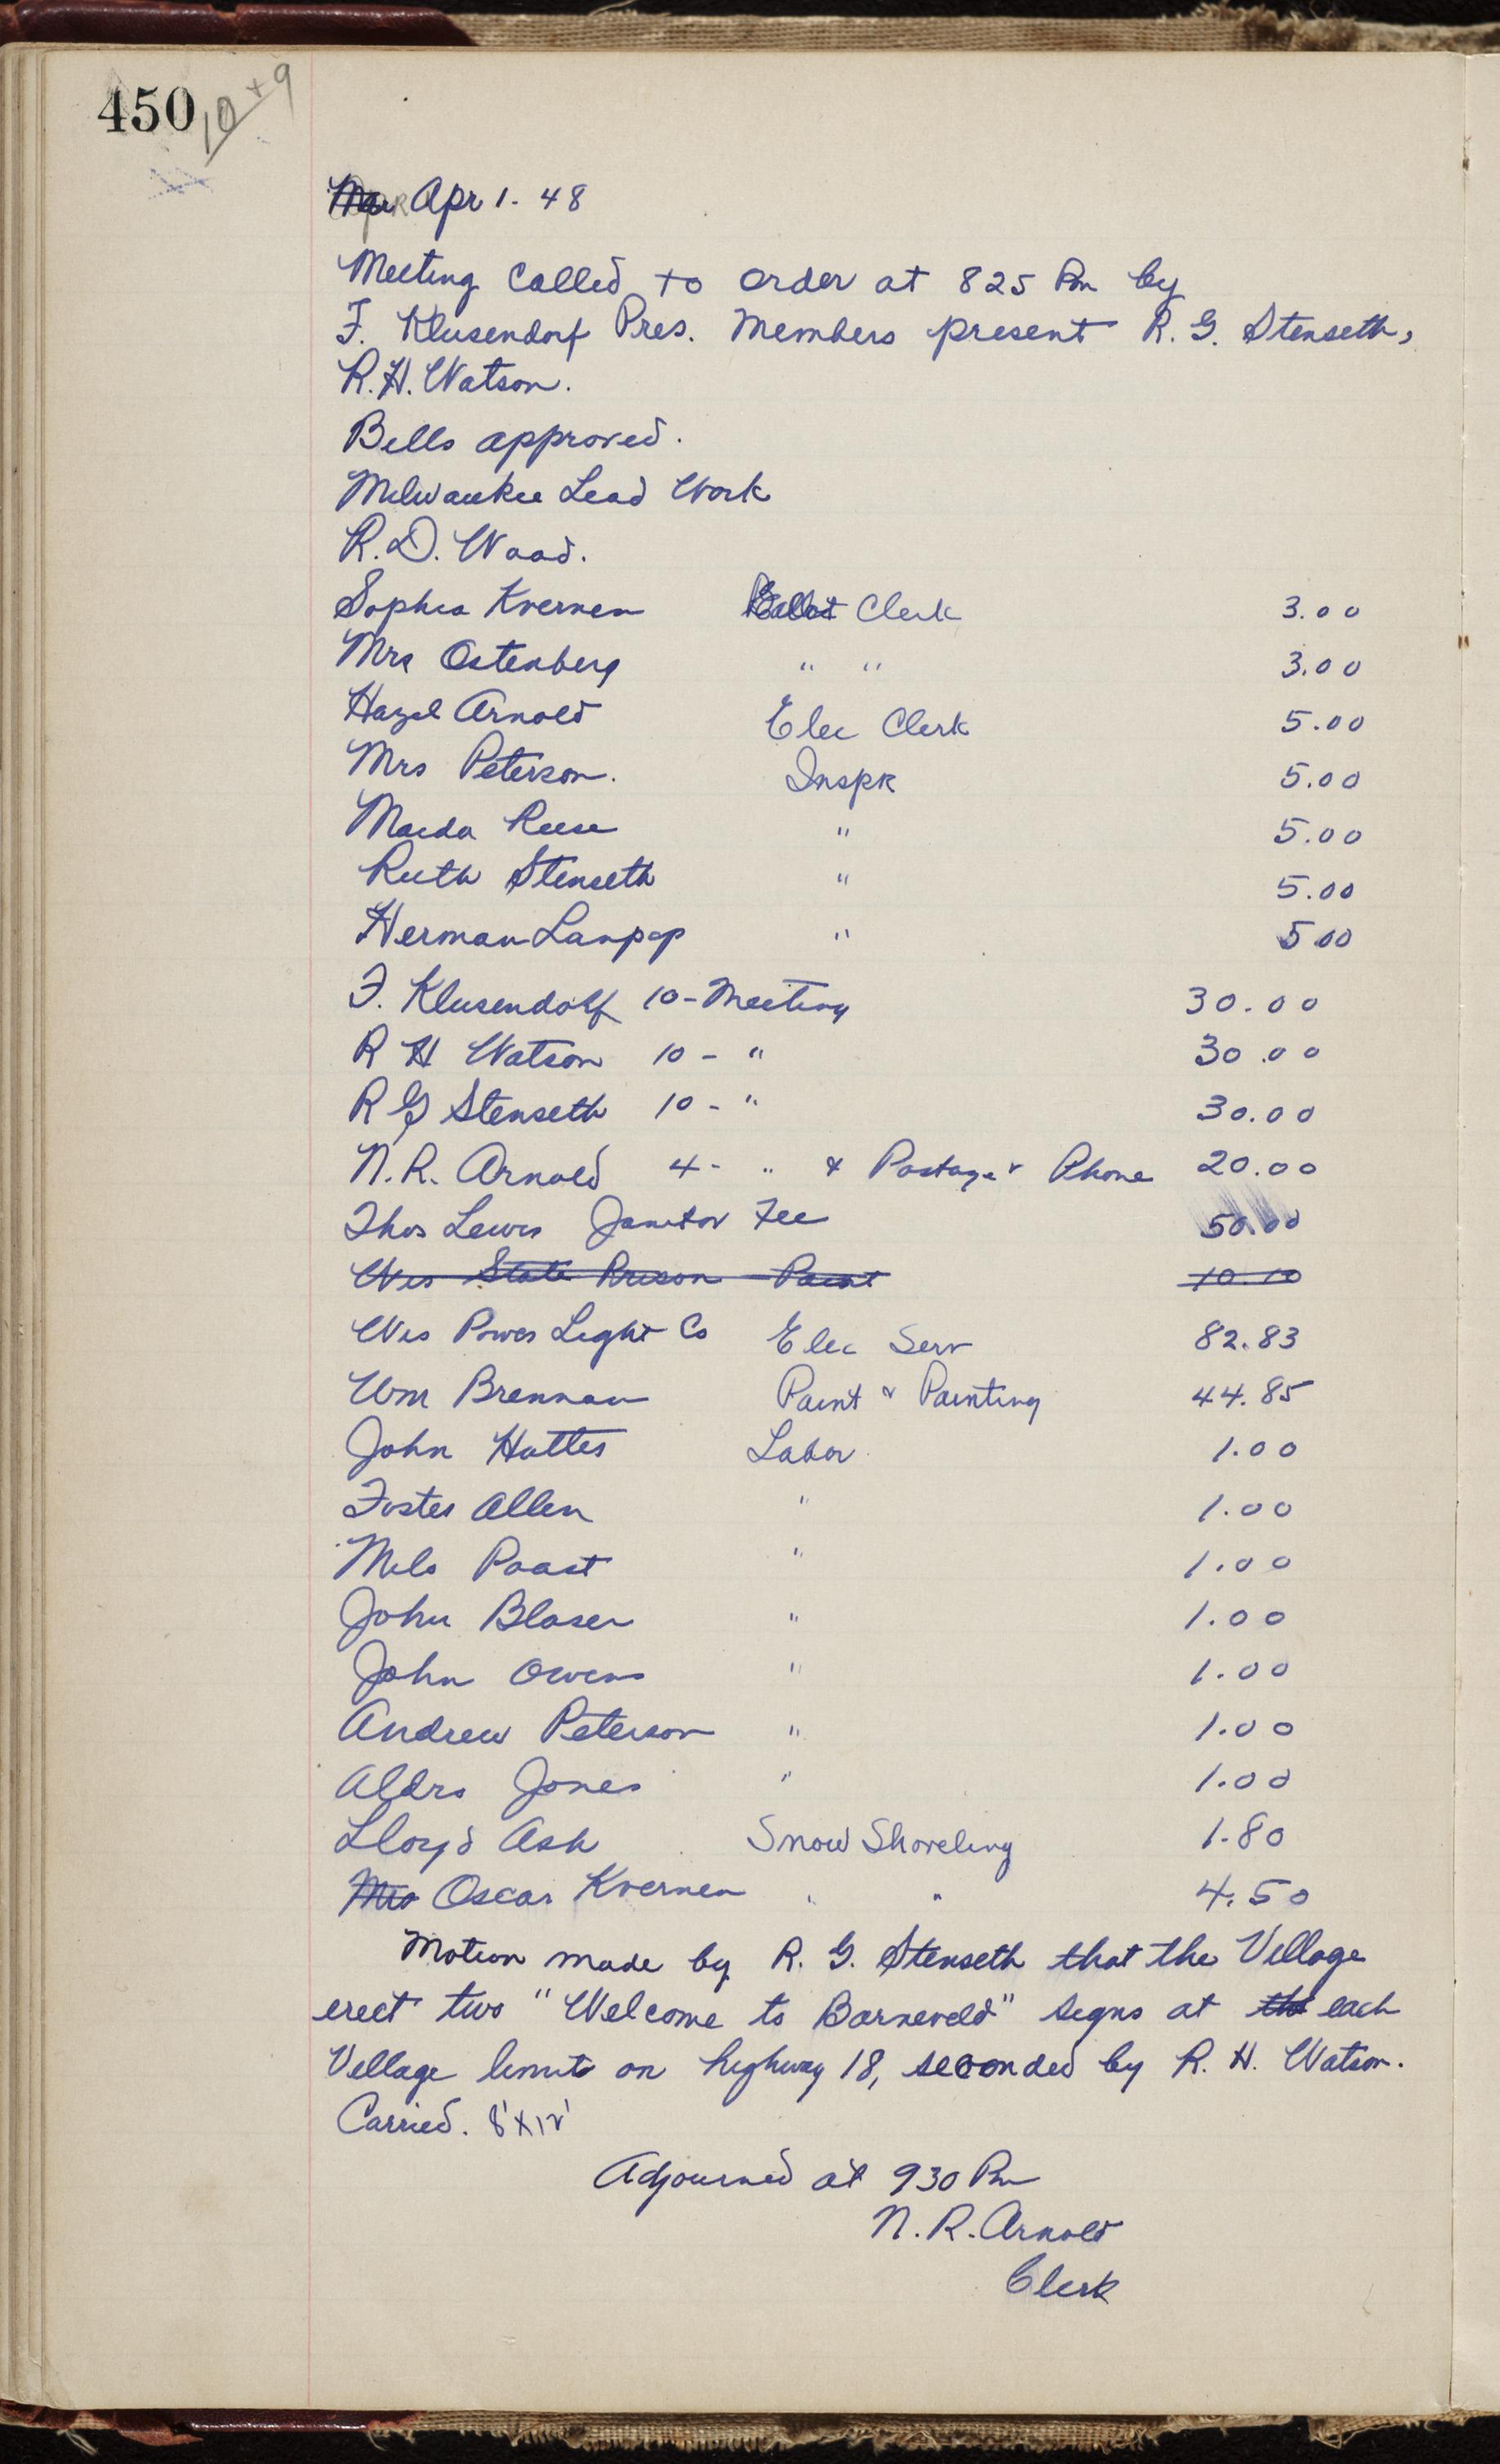 450 10+9
Mar Apr 1. 48
Meeting Called to order at 825 Pm by
F. Klusendorf Pres. Members present R. G. Stenseth,
R. H. Watson.
Bills approved.
Milwaukee Lead Work
R. D. Wood.
Sophia Kvernen Ballot Clerk 3.00
Mrs Ostenberg " " 3.00
Hazel Arnold Elec Clerk 5.00
Mrs Peterson. Inspk 5.00
Maida Reese " 5.00
Ruth Stenseth " 5.00
Herman Lampop " 5 00
F. Klusendorf 10 - Meeting 30.00
R H Watson 10 - " 30.00
R G Stenseth 10 - " 30.00
N. R. Arnold 4 - " & Postage & Phone 20.00
Thos Lewis Janitor Fee 50.00
Wis State Prison Paint 10.10
Wis Power Light Co Elec Serv 82.83
Wm Brennan Paint & Painting 44.85
John Hottes Labor 1.00
Foster Allen " 1.00
Milo Paast " 1.00
John Blaser " 1.00
John Owens " 1.00
Andrew Peterson " 1.00
Aldro Jones " 1.00
Lloyd Ash Snow Shoveling 1.80
Mrs Oscar Kvernen " " 4.50
Motion made by R. G. Stenseth that the Village
erect two "Welcome to Barneveld" signs at the each
Village limits on highway 18, seconded by R. H. Watson.
Carried. 8'x12'
Adjourned at 930 Pm
N. R. Arnold
Clerk